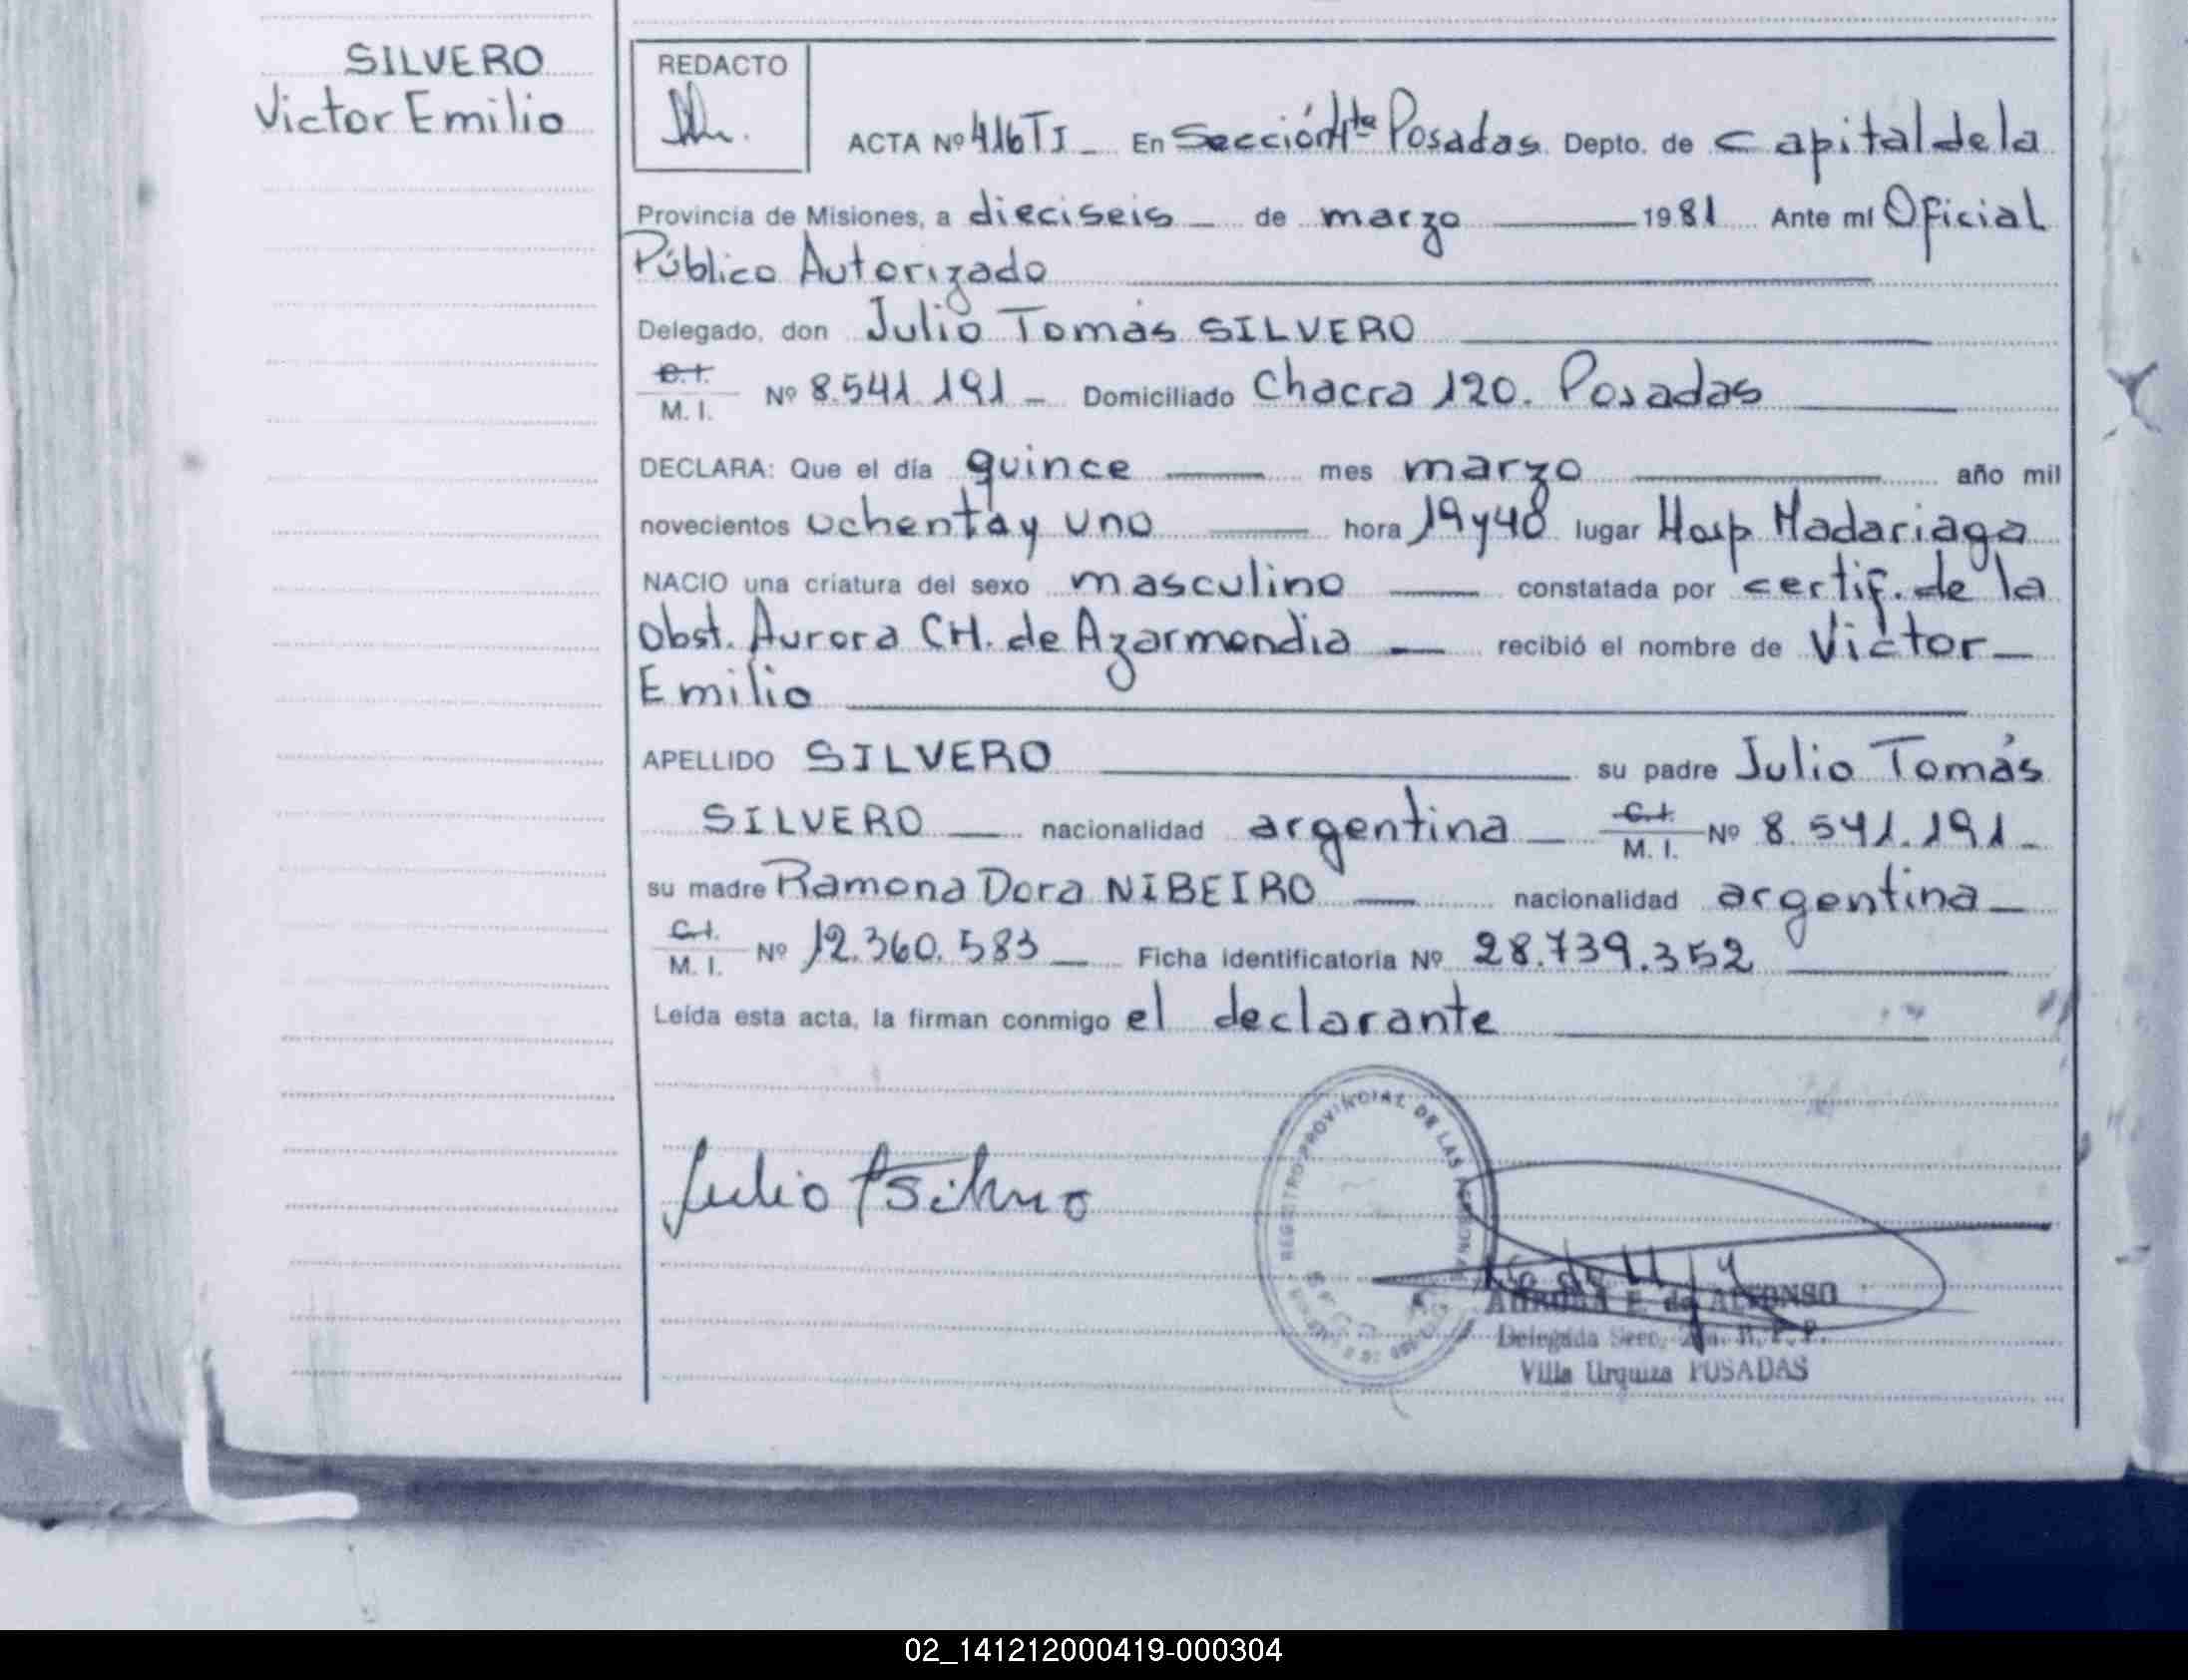 SILVERO
Victor Emilio
REDACTO
ACTA Nº 416 TI — En Sección 4ta Posadas Depto. de Capital de la
Provincia de Misiones, a dieciseis — de marzo — 1981 Ante mí Oficial
Público Autorizado
Delegado, don Julio Tomás SILVERO
C.I.
M. I. Nº 8.541.191 — Domiciliado Chacra 120. Posadas
DECLARA: Que el día quince — mes marzo — año mil
novecientos ochenta y uno — hora 19 y 40 lugar Hosp Madariaga
NACIO una criatura del sexo masculino — constatada por certif. de la
Obst. Aurora CH. de Azarmendia — recibió el nombre de Victor —
Emilio
APELLIDO SILVERO — su padre Julio Tomás
SILVERO — nacionalidad argentina — C.I. M. I. Nº 8.541.191 -
su madre Ramona Dora NIBEIRO — nacionalidad argentina —
C.I.
M. I. Nº 12.360.583 — Ficha identificatoria Nº 28.739.352
Leída esta acta, la firman conmigo el declarante
Julio T Silvero
REGISTRO PROVINCIAL DE LAS PERSONAS
AURORA E. de ALFONSO
Delegada Secc. R. P. P.
Villa Urquiza POSADAS
02_141212000419-000304